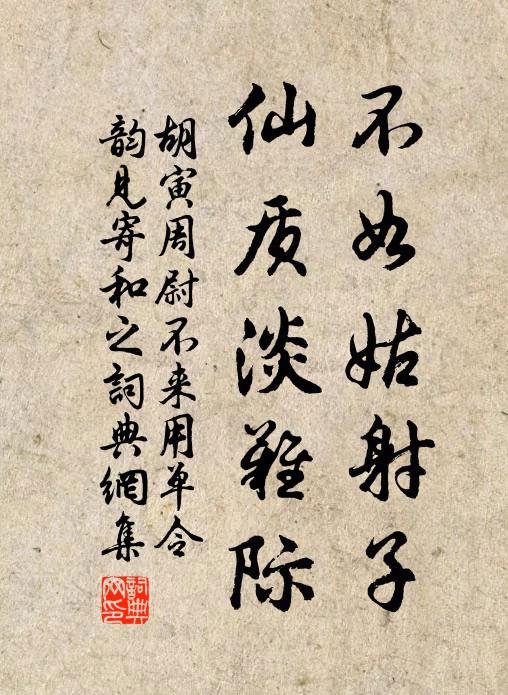 不如姑射子
仙质淡难际
胡寅周尉不来用单令
韵见寄和之詞典網集
詞典網印